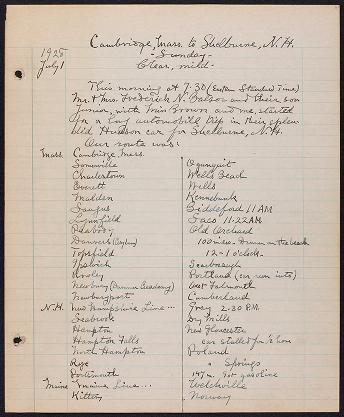 Cambridge, Mass. to Shelburne, N.H.
1928
- Sunday -
July 1
Clear, mild -
This morning at 7.30 (Eastern Standard Time)
Mr. + Mrs. Frederick N. and their son
Junior, with Miss Brown and me, started
for a long automobile trip in their splen-
did Hudson car for Shelburne, N.H.
Our route was:
Mass. Cambridge, Mass.
Somerville
Charlestown
Everett
Malden
Saugus
Lynnfield
Peabody
Danvers (Asylum)
Topsfield
Ipswich
Rowley
Newbury (Dummer Academy)
Newburyport
N.H. New Hampshire Line...
Seabrook
Hampton
Hampton Falls
North Hampton
Rye
Portsmouth
Maine Maine Line...
Kittery
Ogunquit
Wells Beach
Wells
Kennebunk
Biddeford 11 AM
Saco 11.22 AM
Old Orchard
100 miles - Dinner on the beach
12 - 1 o'clock -
Scarborough
Portland (car run into)
West Falmouth
Cumberland
Gray 2.30 P.M.
Dry Mills
New Gloucester
car stalled for ½ hour
Poland
" Springs
147 m. Got gasoline
Welchville
Norway